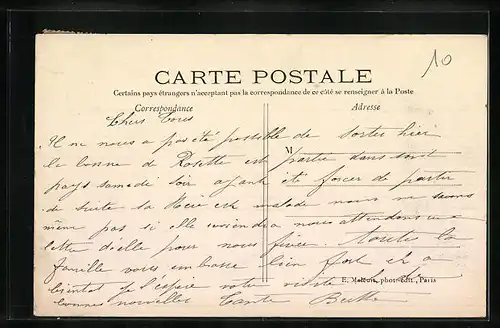 10
CARTE POSTALE
Certains pays étrangers n'acceptant pas la correspondance de ce côté se renseigner à la Poste
Correspondance
Adresse
Chers Tous
Il ne nous a pas été possible de sortir hier
M
la bonne de Rosette est partie dans son
pays samedi soir ayant été forcer de partir
de suite sa est malade nous ne savons
même pas si elle reviendra nous attendons une
lettre d'elle pour nous fixée. Toutes la
famille vous embrasse bien fort et a
E. Malcuit, phot.-édit., Paris
bientot je l'espère votre visite
bonnes nouvelles Tante Berthe